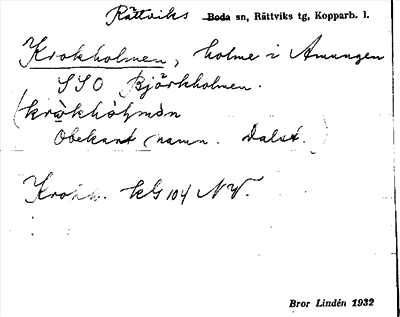 Rättviks Boda sn, Rättviks tg, Kopparb. l.
Krokholmen, holme i Amungen
SSO Björkholmen.
(kròkhòlmən
Obekant namn. Dalst.)
Krokh. kG 104 NV.
Bror Lindén 1932